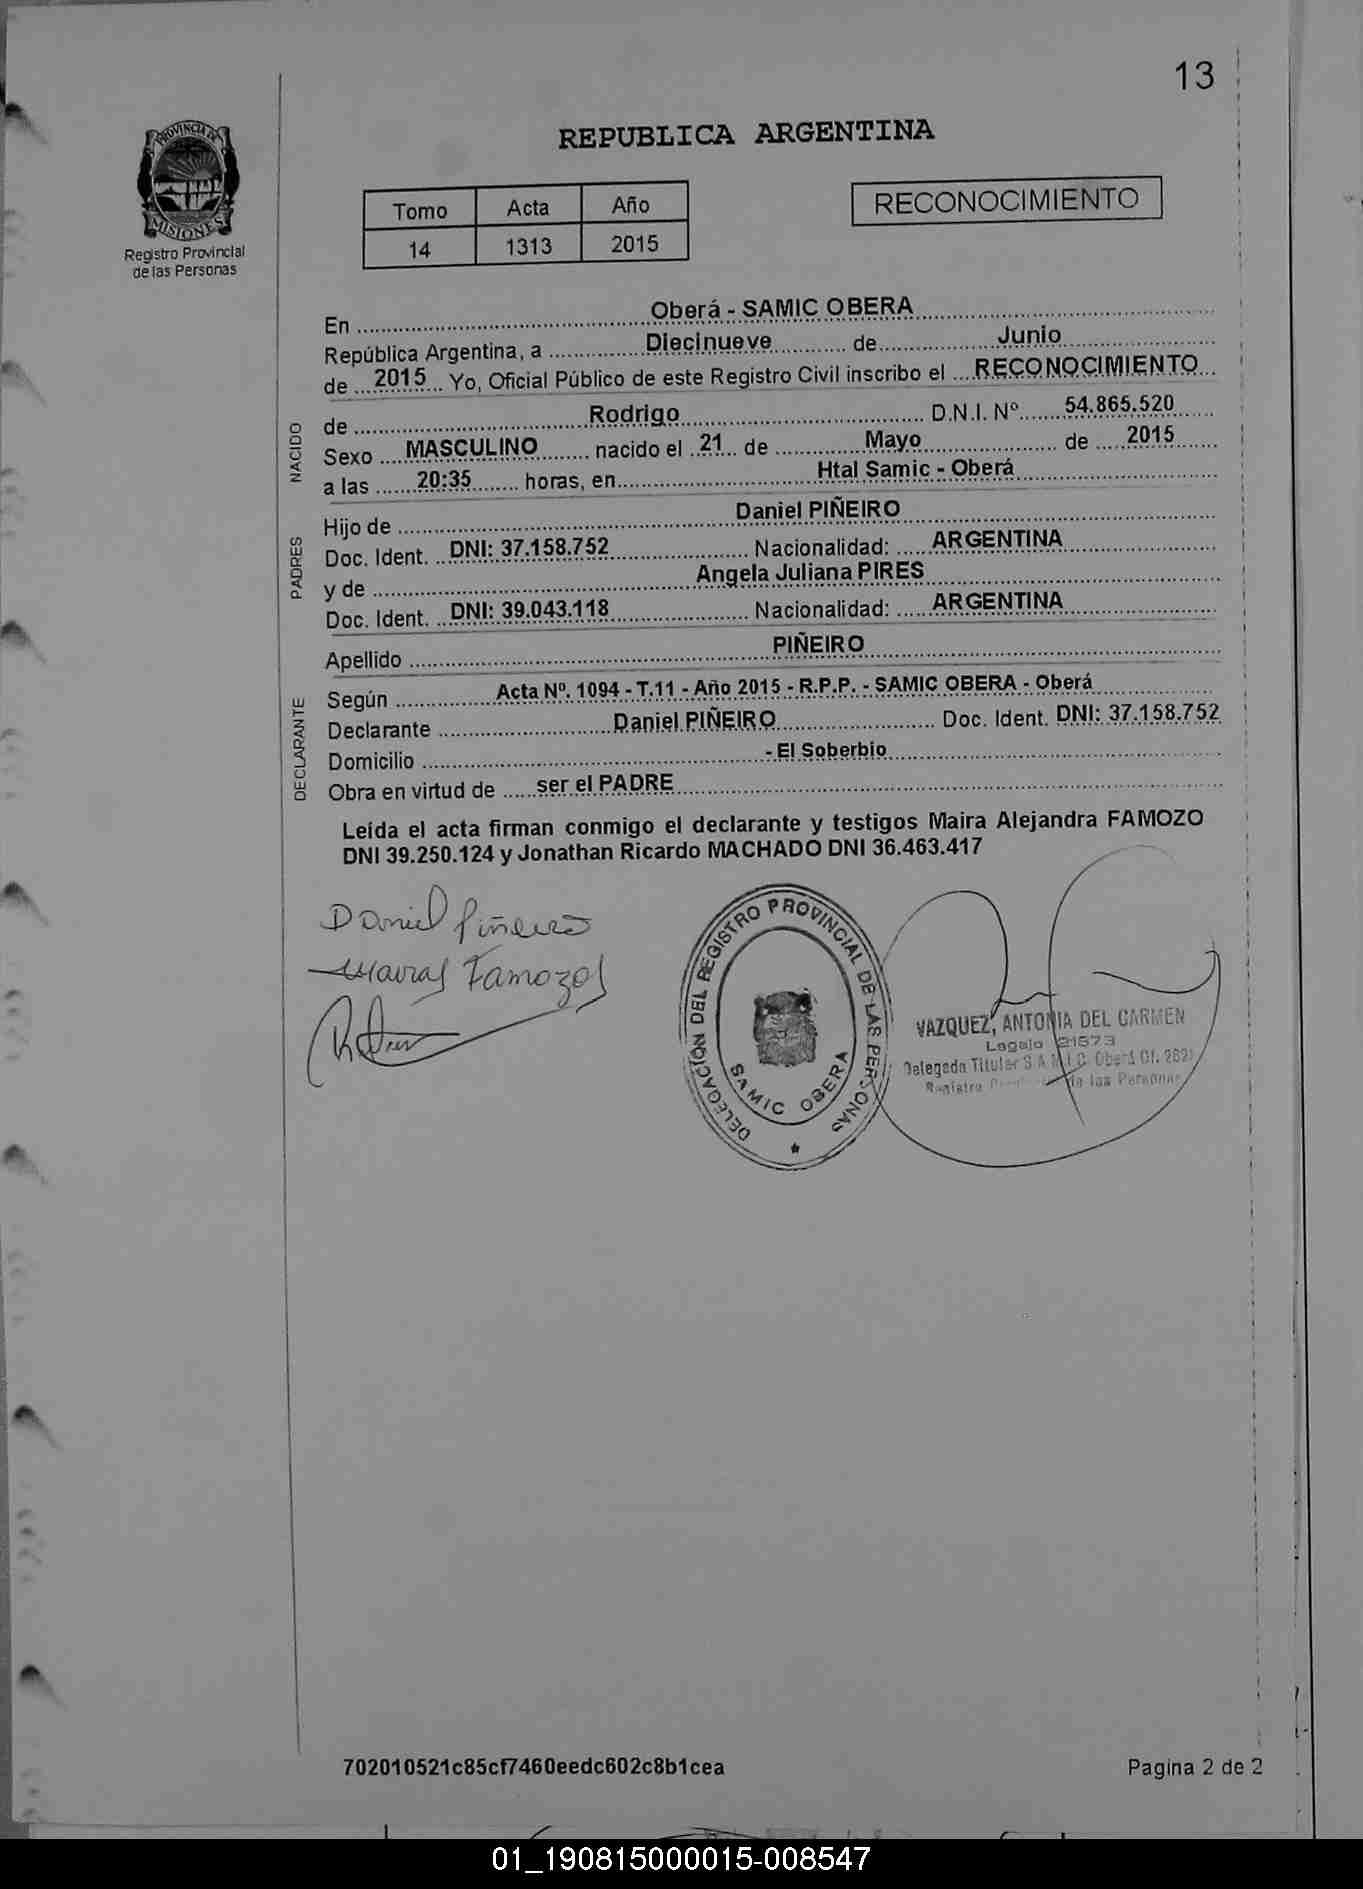 13
PROVINCIA DE
MISIONES
Registro Provincial
de las Personas
REPUBLICA ARGENTINA
Tomo Acta Año
14 1313 2015
RECONOCIMIENTO
En Oberá - SAMIC OBERA
República Argentina, a Diecinueve de Junio
de 2015 Yo, Oficial Público de este Registro Civil inscribo el RECONOCIMIENTO
NACIDO
de Rodrigo D.N.I. Nº 54.865.520
Sexo MASCULINO nacido el 21 de Mayo de 2015
a las 20:35 horas, en Htal Samic - Oberá
PADRES
Hijo de Daniel PIÑEIRO
Doc. Ident. DNI: 37.158.752 Nacionalidad: ARGENTINA
y de Angela Juliana PIRES
Doc. Ident. DNI: 39.043.118 Nacionalidad: ARGENTINA
Apellido PIÑEIRO
DECLARANTE
Según Acta Nº. 1094 - T.11 - Año 2015 - R.P.P. - SAMIC OBERA - Oberá
Declarante Daniel PIÑEIRO Doc. Ident. DNI: 37.158.752
Domicilio - El Soberbio
Obra en virtud de ser el PADRE
Leída el acta firman conmigo el declarante y testigos Maira Alejandra FAMOZO
DNI 39.250.124 y Jonathan Ricardo MACHADO DNI 36.463.417
Daniel Piñeiro
Maira Famozo
DELEGACIÓN DEL REGISTRO PROVINCIAL DE LAS PERSONAS
SAMIC OBERA
VAZQUEZ, ANTONIA DEL CARMEN
Legajo 21573
Delegada Titular S.A.M.I.C. Oberá Of.
Registro de las Personas
702010521c85cf7460eedc602c8b1cea
Pagina 2 de 2
01_190815000015-008547